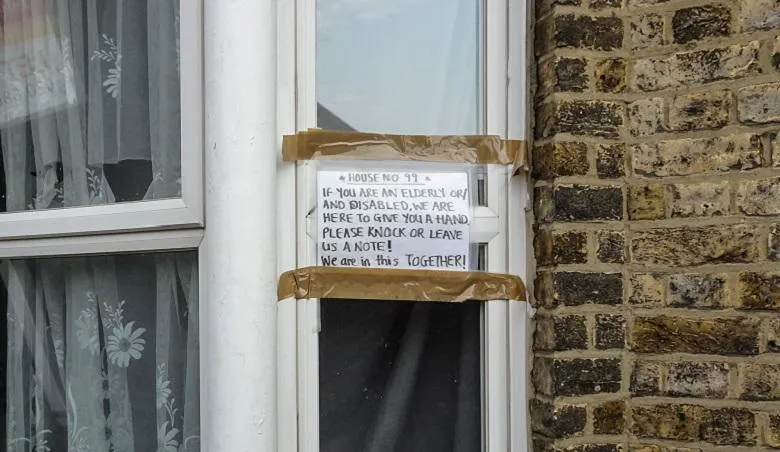 * HOUSE NO 99 *
IF YOU ARE AN ELDERLY OR/
AND DISABLED, WE ARE
HERE TO GIVE YOU A HAND,
PLEASE KNOCK OR LEAVE
US A NOTE!
We are in this TOGETHER!